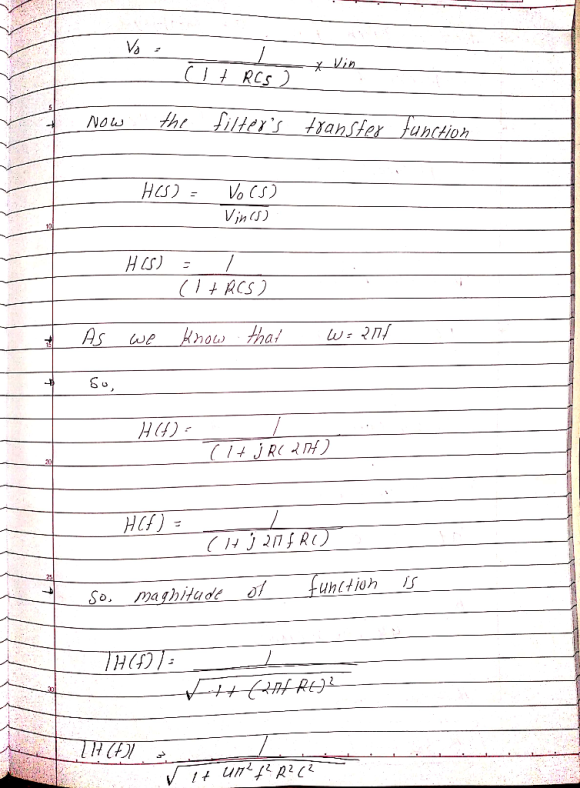 V₀ = 1 / (1 + RCs) × Vin
→ Now the filter's transfer function
H(s) = V₀(s) / Vin(s)
H(s) = 1 / (1 + RCS)
→ As we know that ω = 2πf
→ So,
H(f) = 1 / (1 + jRC2πf)
H(f) = 1 / (1 + j2πfRC)
→ So, magnitude of function is
|H(f)| = 1 / √(1 + (2πfRC)²)
|H(f)| = 1 / √(1 + 4π²f²R²C²)